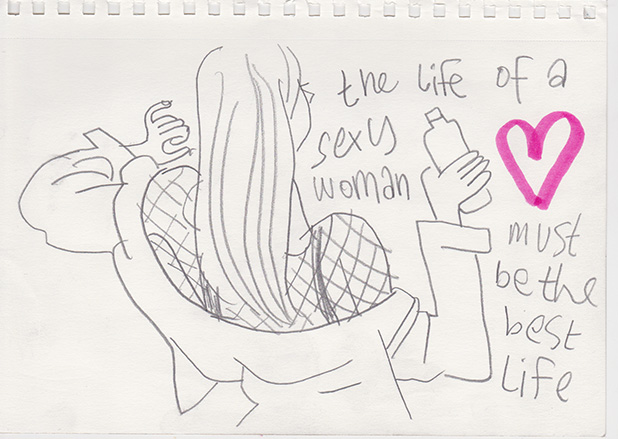 the life of a
sexy
woman
must
be the
best
life